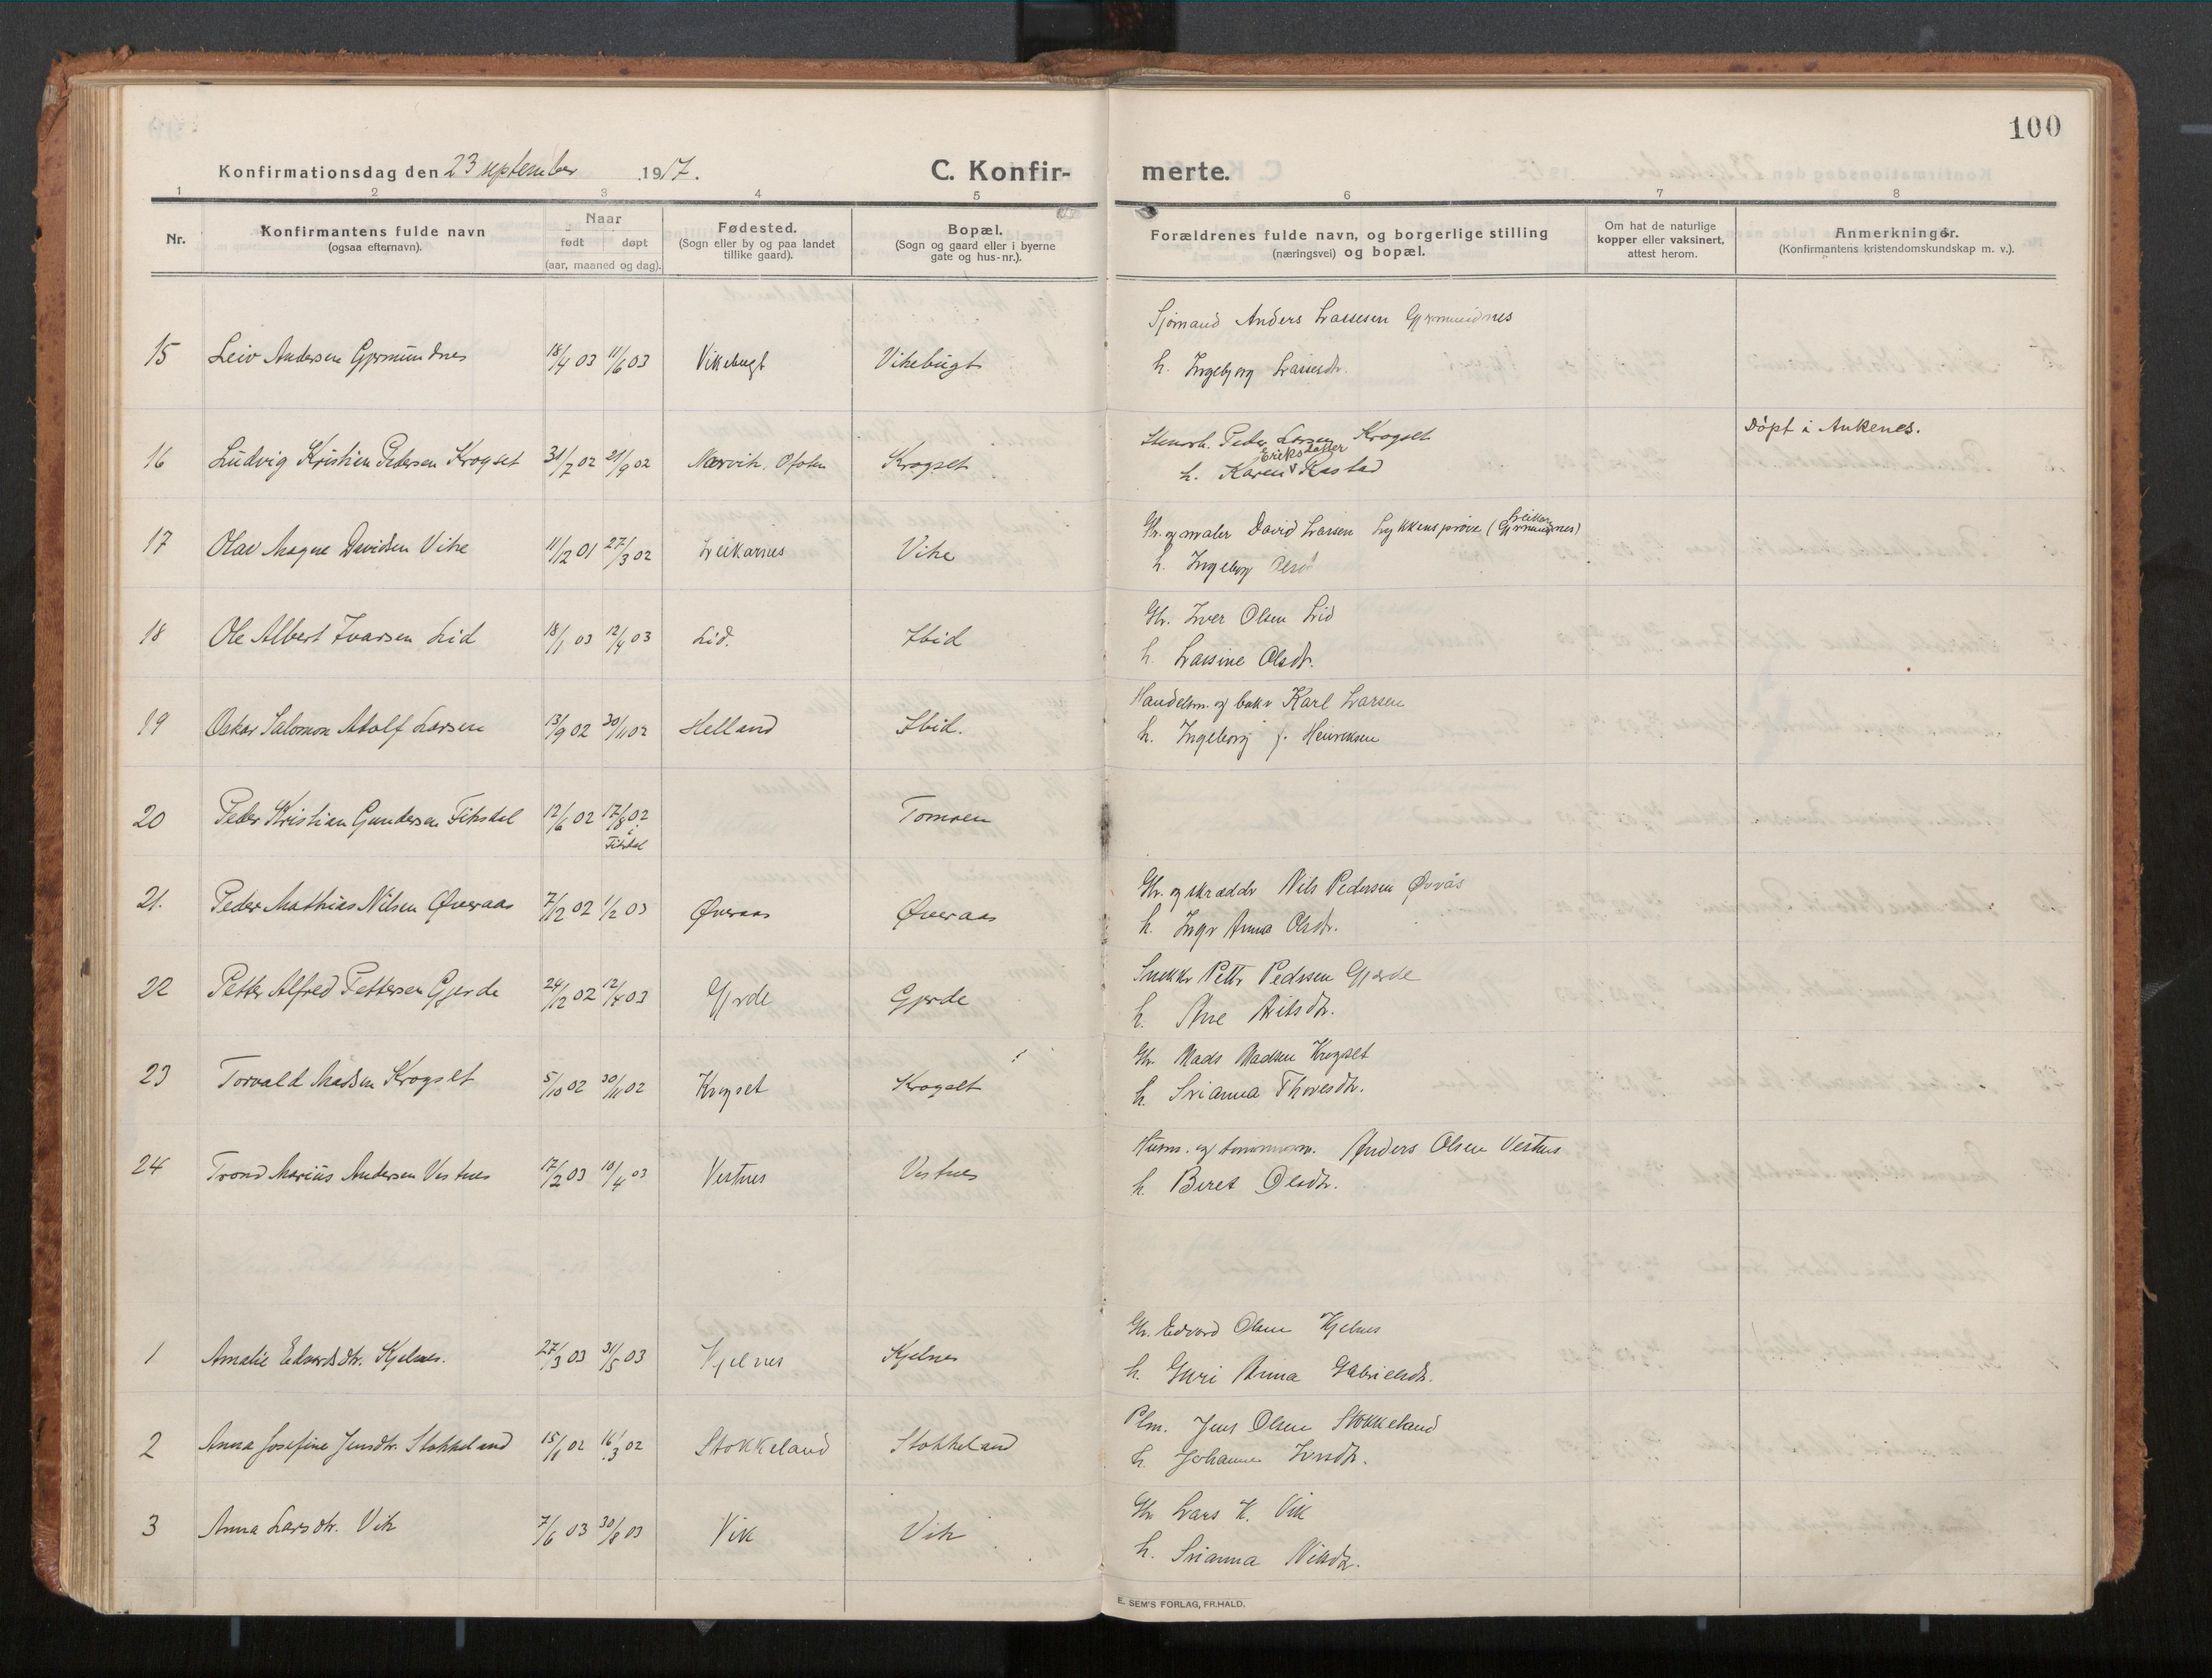 100
Konfirmationsdag den 23 september 1917.
C. Konfirmerte.
1 2 3 4 5 6 7 8
Nr.
Konfirmantens fulde navn
(ogsaa efternavn).
Naar
født døpt
(aar, maaned og dag).
Fødested.
(Sogn eller by og paa landet
tillike gaard).
Bopæl.
(Sogn og gaard eller i byerne
gate og hus-nr.).
Forældrenes fulde navn, og borgerlige stilling
(næringsvei) og bopæl.
Om hat de naturlige
kopper eller vaksinert,
attest herom.
Anmerkninger.
(Konfirmantens kristendomskundskap m. v.).
Sjømand Anders Lassesen Gjermundnes
15 Leiv Andersen Gjermundnes 18/4 03 11/6 03 Vikebugt Vikebugt
h. Ingebjørg Lassesdtr.
Døpt i Ankenes.
Stenarb. Peder Larsen Krogset
Eriksdatter
16 Ludvig Kristian Pedersen Krogset 31/7 02 21/9 02 Narvik, Ofoten Krogset
h. Karen Rastad
Gbr. og maler David Larsen Lykkensprøve (Gjermundnes)
17 Olav Magne Davidsen Vike 11/12 01 27/3 02 Leikarnes Vike
h. Ingeborg
Gbr. Iver Olsen Lid
18 Ole Albert Ivarsen Lid 18/1 03 12/4 03 Lid. Ibid
h. Lassine Olsdtr.
Handelsm. og baker Karl Larsen
19 Oskar Salomon Adolf Larsen 13/9 02 30/11 02 Helland Ibid.
h. Ingeborg f. Henriksen
20 Peder Kristian Gundersen Fiksdal 12/6 02 17/8 02 Tomren
i
Fiksdal
Gbr. og skrædder Nils Pedersen Øvraas
21. Peder Mathias Nilsen Øveraas 7/12 02 1/2 03 Øveraas Øveraas
h. Inger Anna Olsdtr.
Snekker Petter Pedersen Gjerde
22 Petter Alfred Pettersen Gjerde 24/12 02 12/4 03 Gjerde Gjerde
h. Ane Nilsdtr.
Gbr. Mads Madsen Krogset
23 Torvald Madsen Krogset 5/10 02 30/11 02 Krogset Krogset
h. Srianna Thoresdtr.
Husm. og tømmerm. Anders Olsen Vestnes
24 Trond Marius Andersen Vestnes 17/2 03 10/4 03 Vestnes Vestnes
h. Beret Olsdtr.
Gbr. Edvard Olsen Kjelnes
1 Amalie Edvardsdtr. Kjelnes. 27/3 03 31/5 03 Kjelnes Kjelnes
h. Guri Anna Gabrielsdtr.
Plm. Jens Olsen Stokkeland
2 Anna Josefine Jensdtr. Stokkeland 15/1 02 16/3 02 Stokkeland Stokkeland
h. Johanne Iversdtr.
Gbr Lars K. Vik
3 Anna Larsdtr. Vik 7/6 03 30/8 03 Vik Vik
h. Srianna Nilsdtr.
E. SEM'S FORLAG, FR.HALD.